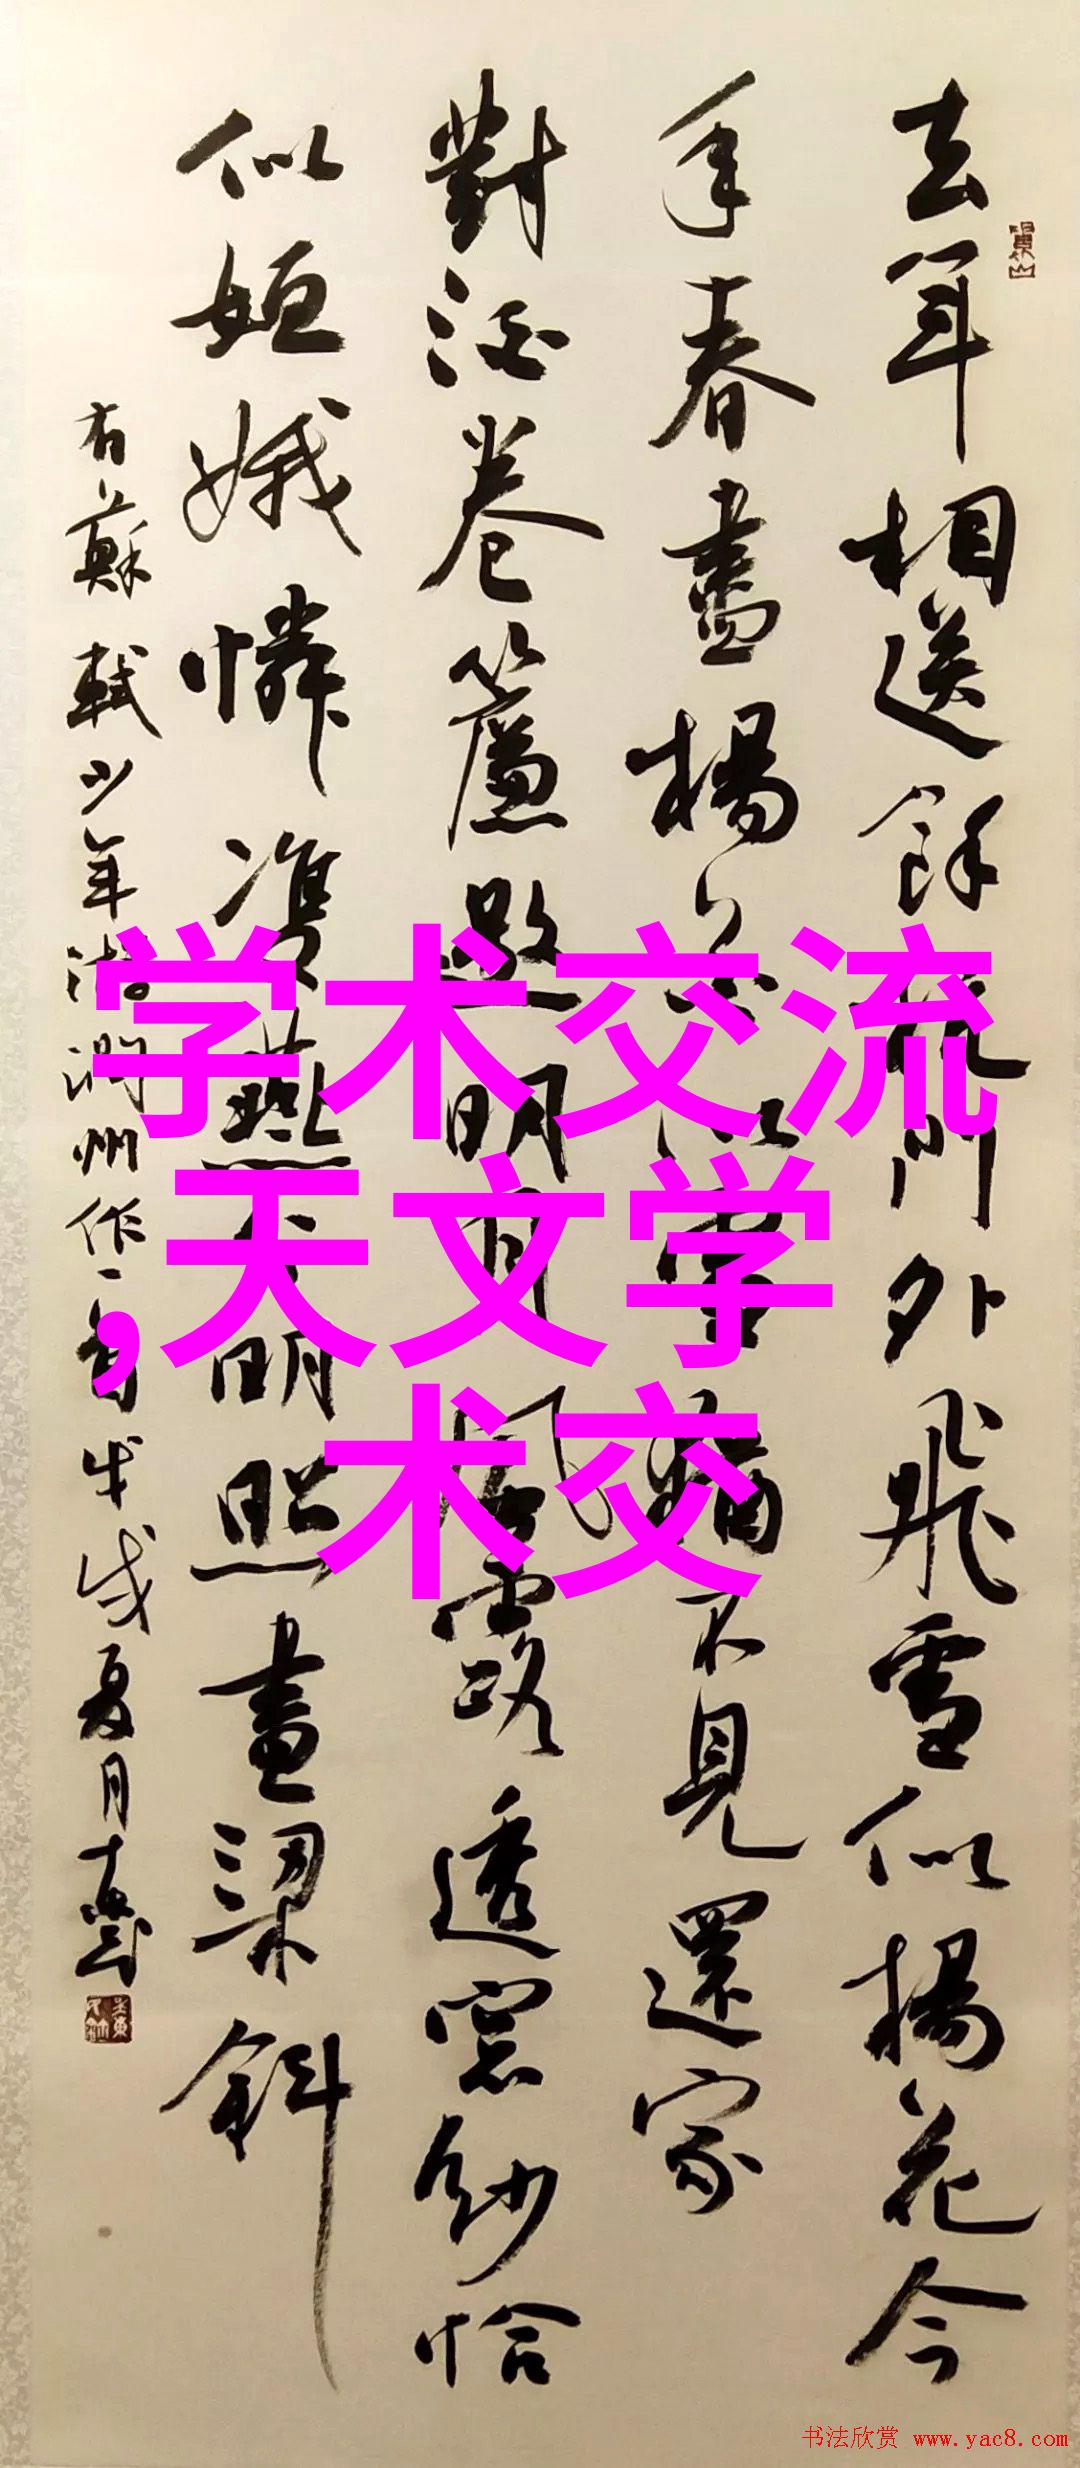 去年相送餘杭門外飛雪似楊花今
年春盡楊花似雪猶不見還家
對酒卷簾邀明月風露透窗紗恰
似姮娥憐雙燕分明照畫梁斜
右蘇軾少年游潤州作一首戊戌夏月
学术交流
,天文学
术交
书法欣赏 www.yac8.com